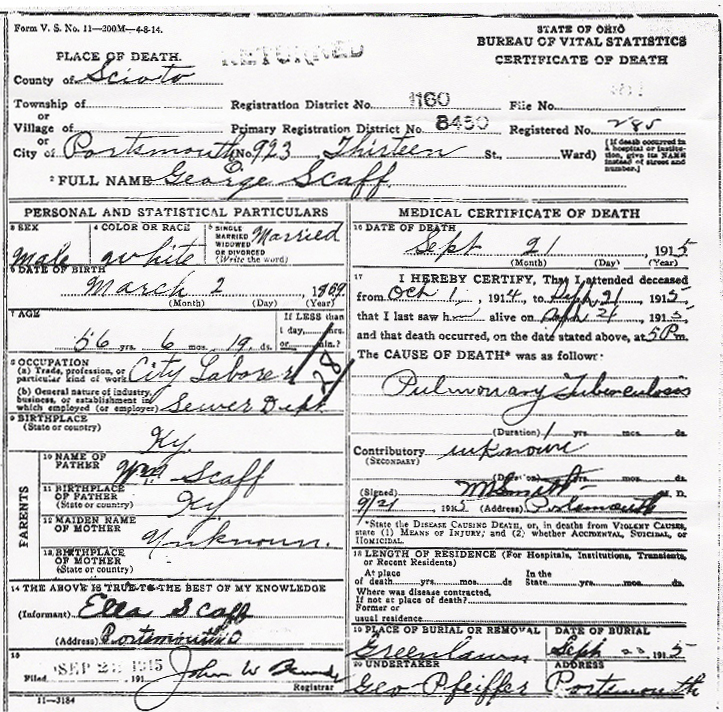 Form V. S. No. 11—200M—4-8-14.
STATE OF OHIO
BUREAU OF VITAL STATISTICS
CERTIFICATE OF DEATH
PLACE OF DEATH.
RETURNED
County of Scioto
Township of
Registration District No. 1160
File No.
or
Village of
Primary Registration District No. 8430
Registered No. 285
or
City of Portsmouth (No. 923 Thirteen St., Ward)
[If death occurred in a hospital or institution, give its NAME instead of street and number.]
2 FULL NAME George Scaff
PERSONAL AND STATISTICAL PARTICULARS
3 SEX
Male
4 COLOR OR RACE
white
5 SINGLE MARRIED WIDOWED OR DIVORCED (Write the word)
Married
6 DATE OF BIRTH
March 2
(Month) (Day) (Year)
7 AGE
56 yrs. 6 mos. 19 ds.
If LESS than 1 day, hrs. or min.?
8 OCCUPATION
(a) Trade, profession, or particular kind of work City Laborer
(b) General nature of industry, business, or establishment in which employed (or employer) Sewer Dept.
28
9 BIRTHPLACE
(State or country)
Ky.
PARENTS
10 NAME OF FATHER
Wm Scaff
11 BIRTHPLACE OF FATHER
(State or country)
Ky
12 MAIDEN NAME OF MOTHER
Unknown.
13 BIRTHPLACE OF MOTHER
(State or country)
14 THE ABOVE IS TRUE TO THE BEST OF MY KNOWLEDGE
(Informant) Ella Scaff
(Address) Portsmouth O
15
Filed SEP 1915, 191
John W
Registrar
11—3184
MEDICAL CERTIFICATE OF DEATH
16 DATE OF DEATH
Sept 21 1915
(Month) (Day) (Year)
17 I HEREBY CERTIFY, That I attended deceased
from Oct 1, 1914, to Sept 21 1915,
that I last saw h alive on Sept 21 1915
and that death occurred, on the date stated above, at 5 P m.
The CAUSE OF DEATH* was as follows:
Pulmonary Tuberculosis
(Duration) 1 yrs. mos. ds.
Contributory unknown
(SECONDARY)
(Duration) yrs. mos. ds.
(Signed) M. D.
9/21 1915 (Address) Portsmouth
*State the DISEASE CAUSING DEATH, or, in deaths from VIOLENT CAUSES, state (1) MEANS OF INJURY; and (2) whether ACCIDENTAL, SUICIDAL, or HOMICIDAL.
18 LENGTH OF RESIDENCE (For Hospitals, Institutions, Transients, or Recent Residents)
At place of death yrs. mos. ds In the State yrs. mos. ds.
Where was disease contracted, If not at place of death?
Former or usual residence
19 PLACE OF BURIAL OR REMOVAL
Greenlawn
DATE OF BURIAL
Sept 23 1915
20 UNDERTAKER
Geo Pfeiffer
ADDRESS
Portsmouth